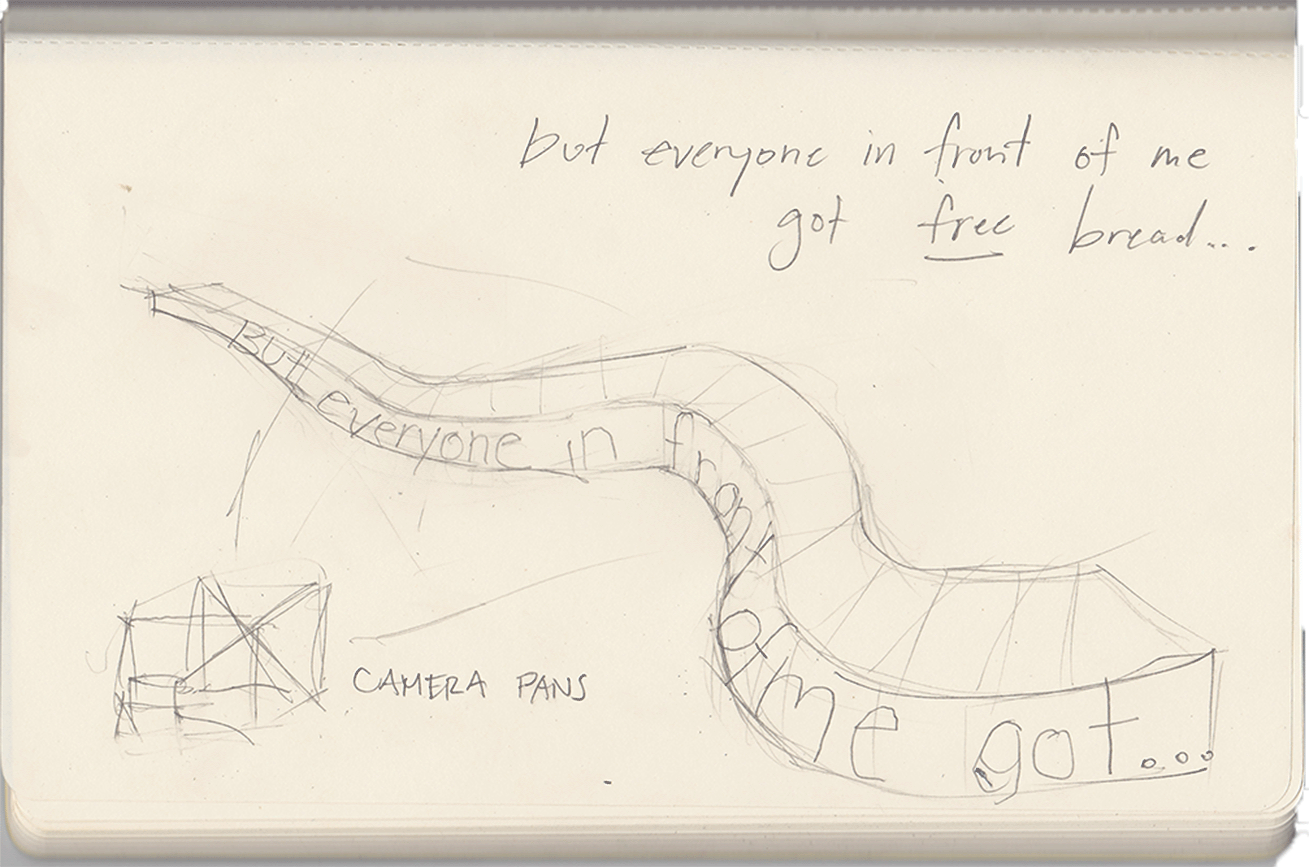 but everyone in front of me
got free bread...
But everyone in front of me got...
CAMERA PANS